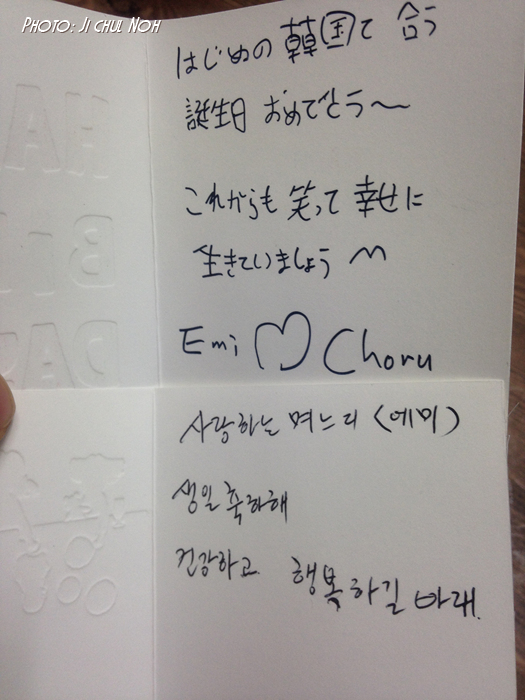 Photo: Ji chul Noh
はじめの韓国で 合う
誕生日 おめでとう〜
これからも 笑って 幸せに
生きていましょう ^^
Emi ♡ Choru
사랑하는 며느리 (에미)
생일 축하해
건강하고 행복하길 바래.
HA
BI
DA